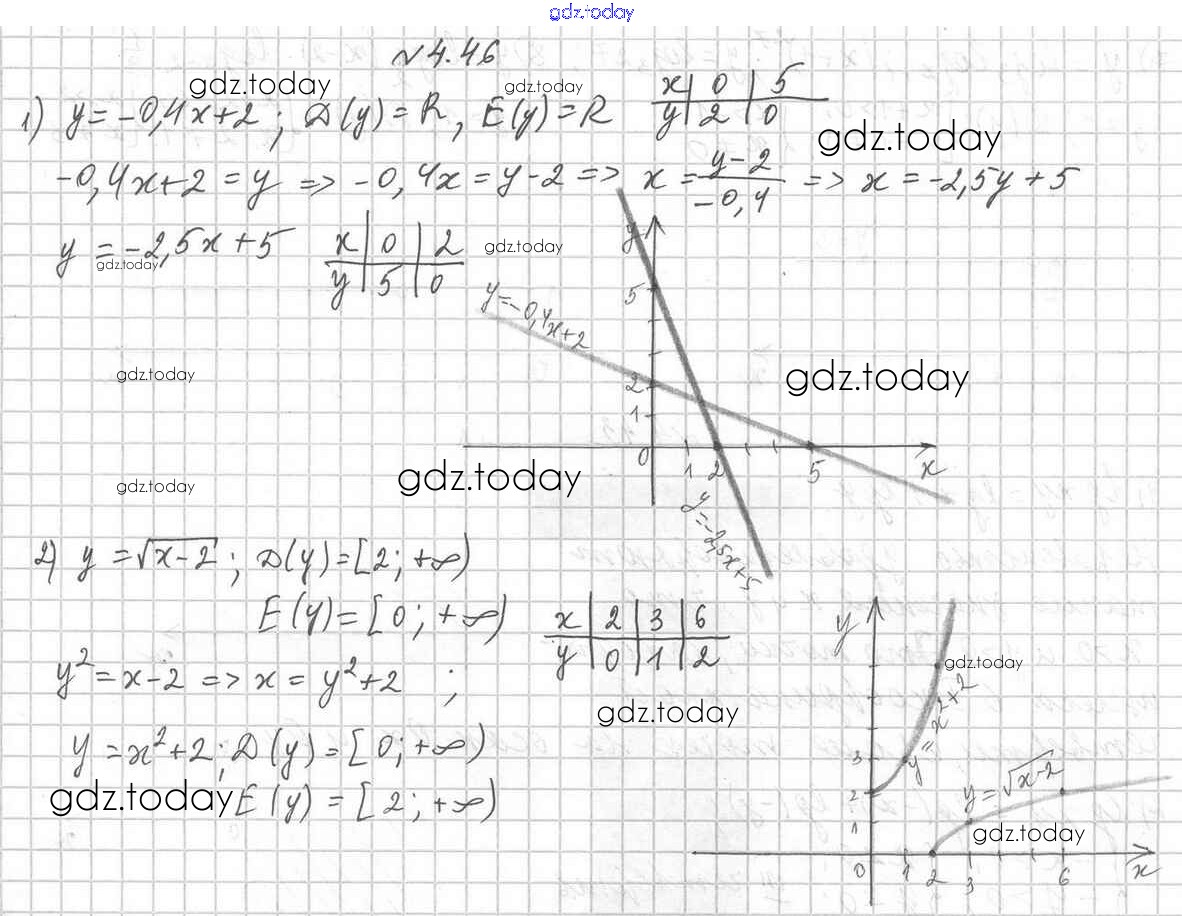 gdz.today
№ 4.46
gdz.today gdz.today
1) y = -0,4x+2; D(y) = R, E(y) = R
x | 0 | 5
y | 2 | 0
gdz.today
-0,4x+2 = y => -0,4x = y-2 => x = (y-2)/(-0,4) => x = -2,5y+5
y = -2,5x+5
gdz.today
x | 0 | 2
y | 5 | 0
gdz.today
y
5
y=-0,4x+2
gdz.today
gdz.today
2
1
0 1 2 5 x
gdz.today
gdz.today
y=-2,5x+5
2) y = √(x-2); D(y) = [2; +∞)
E(y) = [0; +∞)
x | 2 | 3 | 6
y | 0 | 1 | 2
y
gdz.today
y² = x-2 => x = y²+2 ;
gdz.today
y = x²+2
y = x²+2; D(y) = [0; +∞)
gdz.today
E(y) = [2; +∞)
3
2
1
y = √(x-2)
gdz.today
0 1 2 3 6 x